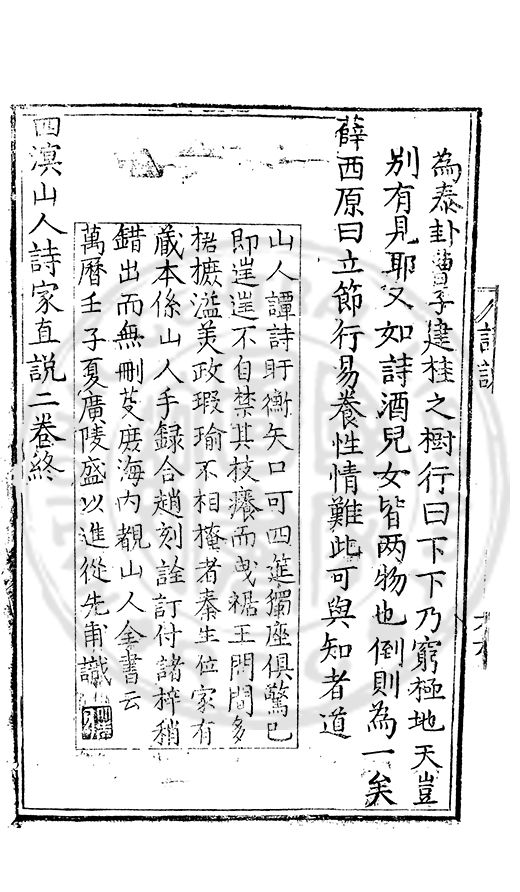 為泰卦曹子建桂之樹行曰下下乃窮極地天豈
別有見耶又如詩酒兒女皆两物也倒則為一矣
薛西原曰立節行易養性情難此可與知者道
山人譚詩盱衡矢口可四筵獨座俱驚已
即逞逞不自禁其枝癢而曳裾王門間多
楛櫨溢美政瑕瑜不相掩者秦生位家有
藏本係山人手録合趙刻詮訂付諸梓稍
錯出而無刪芟庻海内覩山人全書云
萬曆壬子夏廣陵盛以進從先甫識
四溟山人詩家直説二卷終